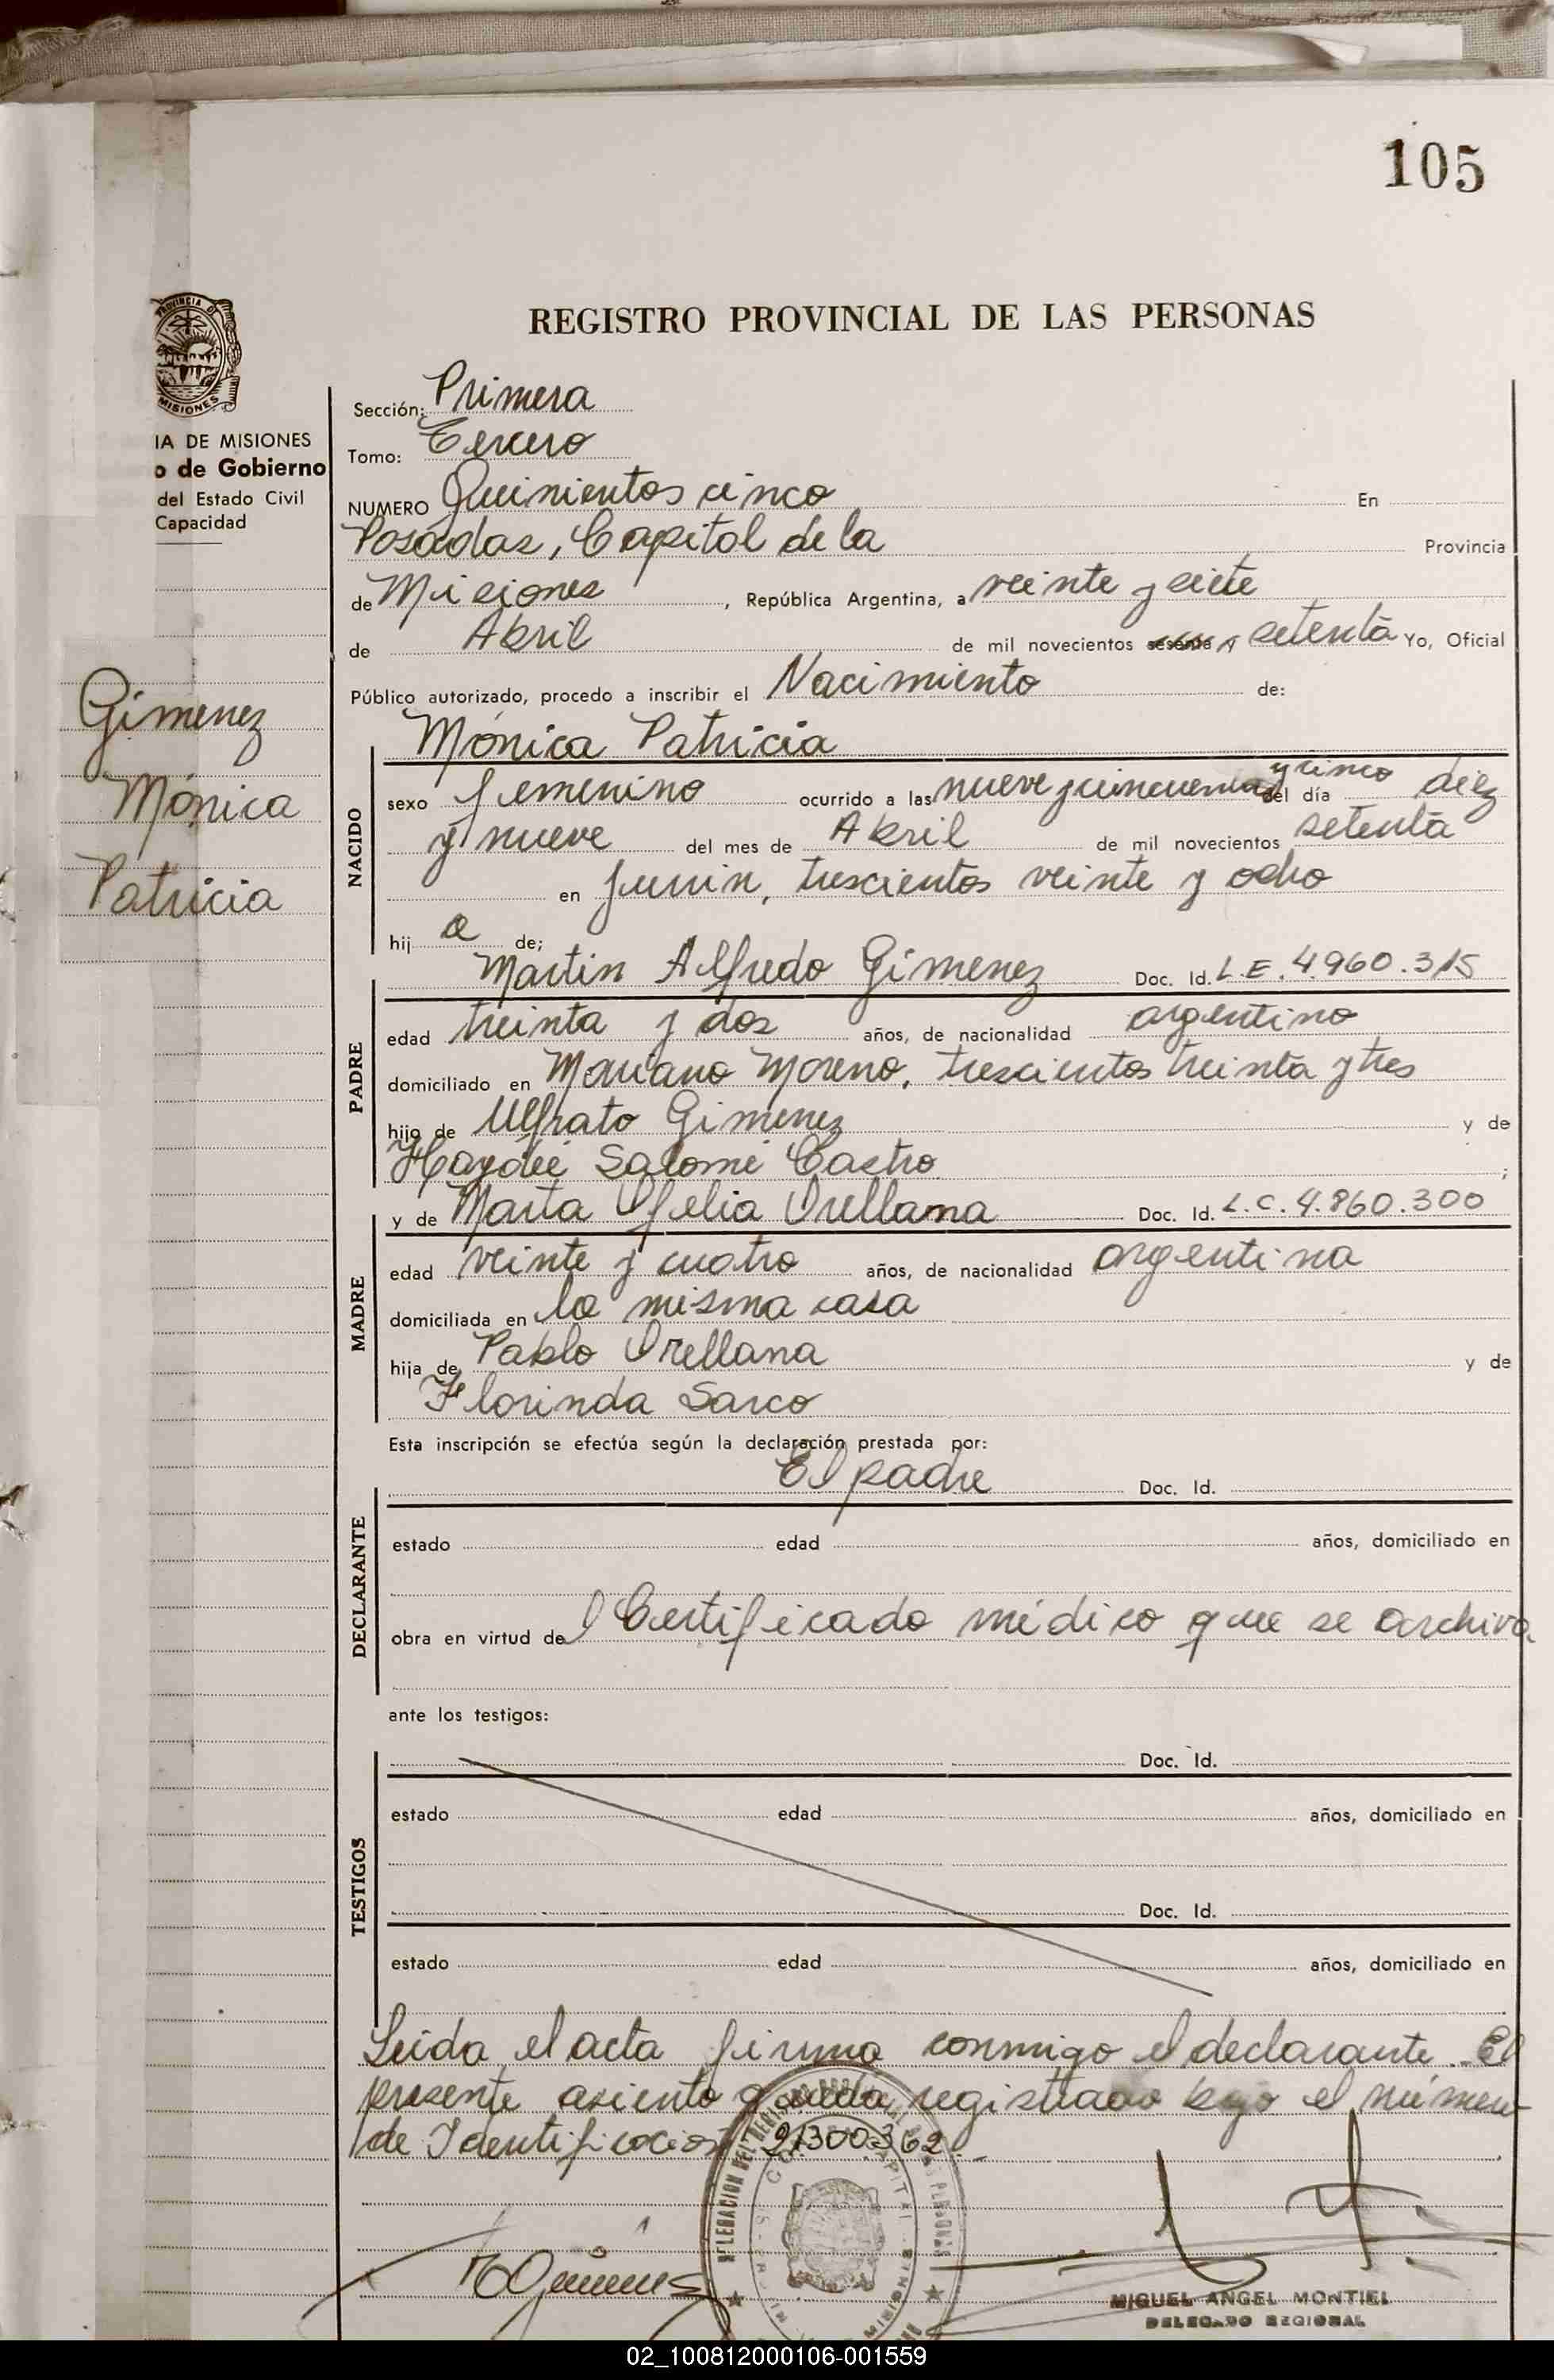 105
REGISTRO PROVINCIAL DE LAS PERSONAS
PROVINCIA D
MISIONES
IA DE MISIONES
o de Gobierno
del Estado Civil
Capacidad
Gimenez
Mónica
Patricia
Sección: Primera
Tomo: Tercero
NUMERO Quinientos cinco En
Posadas, Capital de la Provincia
de Misiones, República Argentina, a veinte y siete
de Abril de mil novecientos sesenta y setenta Yo, Oficial
Público autorizado, procedo a inscribir el Nacimiento de:
Mónica Patricia
NACIDO
sexo femenino ocurrido a las nueve y cincuenta y cinco del día diez
y nueve del mes de Abril de mil novecientos setenta
en Junin, trescientos veinte y ocho
hij a de;
Martin Alfredo Gimenez Doc. Id. L.E. 4960.315
PADRE
edad treinta y dos años, de nacionalidad argentino
domiciliado en Mariano Moreno, trescientos treinta y tres
hijo de Gimenez y de
Haydée Salomé Castro ;
y de Marta Ofelia Orellana Doc. Id. L.C. 4.860.300
MADRE
edad veinte y cuatro años, de nacionalidad argentina
domiciliada en la misma casa
hija de Pablo Orellana y de
Florinda Sarco
Esta inscripción se efectúa según la declaración prestada por:
El padre Doc. Id.
DECLARANTE
estado edad años, domiciliado en
obra en virtud del Certificado médico que se archiva
ante los testigos:
Doc. Id.
TESTIGOS
estado edad años, domiciliado en
Doc. Id.
estado edad años, domiciliado en
Leida el acta firma conmigo el declarante. El
presente asiento queda registrado bajo el número
de Identificación 21300362.-
MIGUEL ANGEL MONTIEL
DELEGADO REGIONAL
02_100812000106-001559